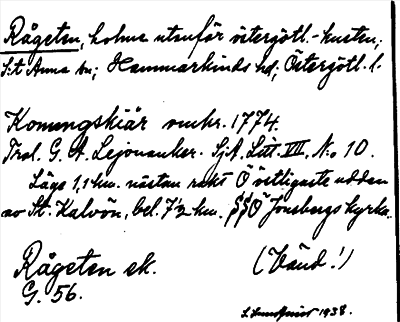 Rågeten, holme utanför östergötl.-kusten;
S:t Anna sn; Hammarkinds hd; Östergötl. l.
Konungskiär omkr. 1774.
Trol. G. A. Lejonanker. SjA. Litt. VII, No 10.
Läge 1,1 km. nästan rakt Ö östligaste udden
av St. Kalvön, bel. 7½ km. SSÖ Jonsbergs kyrka.
Rågeten ek.
G. 56.
(Vänd!)
1938.